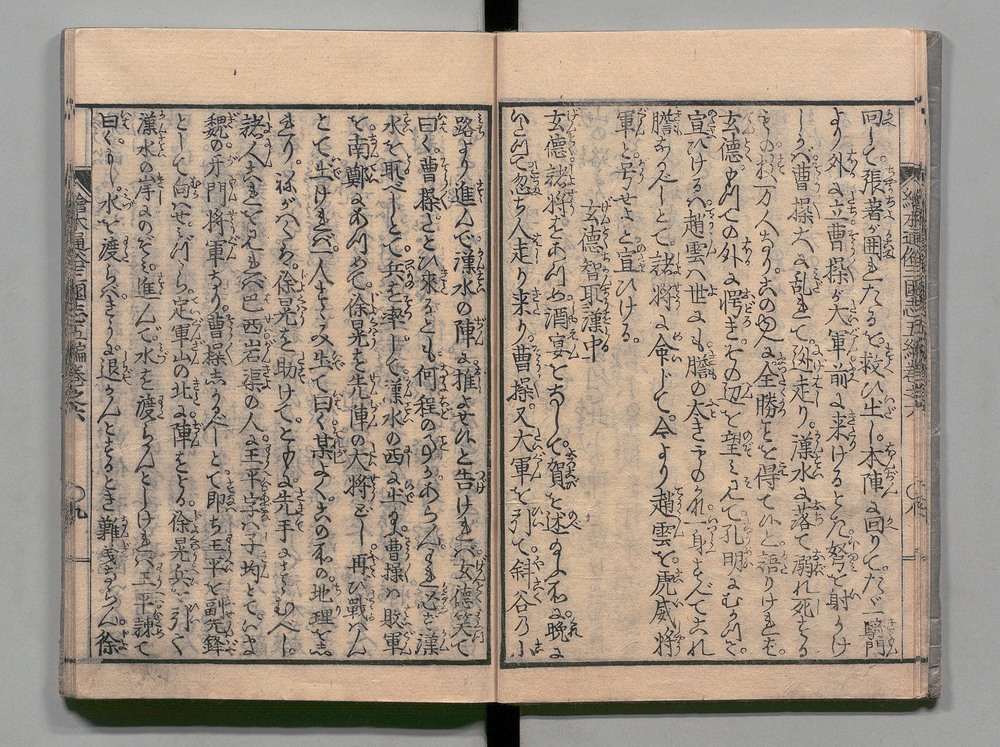 回して張著が囲れたるを救ひ出し本陣に回りてたゞ一騎門
より外に立曹操が大軍前に来けるとき弩を射かけ
しかバ曹操大に乱れて逃走り漢水に落て溺れ死する
もの数万人なり此のゆへに全勝を得てひと語りけれバ
玄德もつての外に愕きその辺を望ミ見て孔明にむかつて
宣ひけるハ趙雲ハ世にも膽の大きなものかな一身すべてこれ
膽なりとて諸将に命じて今より趙雲を虎威将
軍と号せよと宣ひける
玄德智取漢中
玄德諸将をあつめ酒宴をなして賀を述のミ不於晩に
いたつて忽ち人走り来り曹操又大軍を引て斜谷乃小
路より進んで漢水の陣に推よせひと告けれバ玄德笑て
曰く曹操さとひ来るとも何程の事かあらんわれ必ず漢
水を取べしとて兵を率して漢水の西に出る曹操ハ敗軍
を南鄭にあつめて徐晃を先陣の大将とし再び戰ハん
とて出けれバ一人すゝみ出て曰く某よく此の所の地理を志
れり ねがハくハ徐晃を助けてともに先手にすゝむべし
諸人これをミれバ巴西岩渠の人王平字ハ子均とていま
魏の牙門将軍なり曹操志かるべしとて即ち王平を副先鋒
として向ハせければ定軍山の北に陣をとる徐晃兵を引て
漢水の岸にのぞミ進んで水を渡らんとしけれバ王平諫て
曰くもし水を渡らバきうに退かんとするとき難義ならん徐
繪本通俗三國志五編巻之六
八
繪本通俗三國志五編巻之六
九